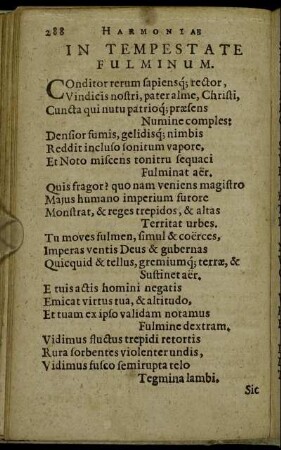 288 HARMONIAE
IN TEMPESTATE
FULMINUM.
COnditor rerum sapiensq; rector,
Vindicis nostri, pater alme, Christi,
Cuncta qui nutu patrioq; præsens
Numine comples:
Densior fumis, gelidisq; nimbis
Reddit incluso sonitum vapore,
Et Noto miscens tonitru sequaci
Fulminat aër.
Quis fragor? quo nam veniens magistro
Majus humano imperium furore
Monstrat, & reges trepidos, & altas
Territat urbes.
Tu moves fulmen, simul & coërces,
Imperas ventis Deus & gubernas
Quicquid & tellus, gremiumq; terræ, &
Sustinet aër.
E tuis actis homini negatis
Emicat virtus tua, & altitudo,
Et tuam ex ipso validam notamus
Fulmine dextram.
Vidimus fluctus trepidi retortis
Rura sorbentes violenter undis,
Vidimus fusco semirupta telo
Tegmina lambi.
Sic